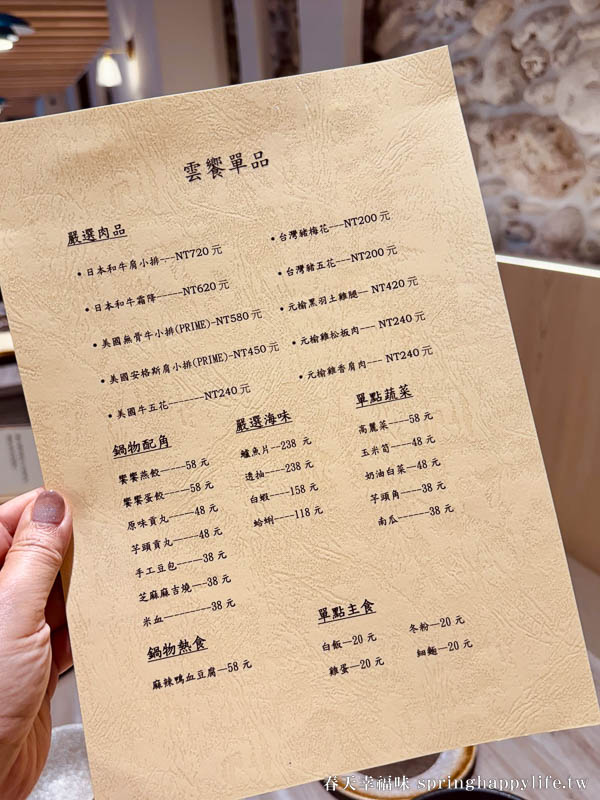 雲饗單品
嚴選肉品
•日本和牛肩小排---NT720元
•日本和牛霜降-----NT620元
•美國無骨牛小排(PRIME)-NT580元
•美國安格斯肩小排(PRIME)-NT450元
•美國牛五花-------NT240元
•台灣豬梅花---NT200元
•台灣豬五花---NT200元
•元榆黑羽土雞腿--NT420元
•元榆雞松板肉---NT240元
•元榆雞香肩肉---NT240元
鍋物配角
饗饗燕餃-----58元
饗饗蛋餃-----58元
原味貢丸-----48元
芋頭貢丸-----48元
手工豆包-----38元
芝麻麻吉燒---38元
米血---------38元
嚴選海味
鱸魚片--238元
透抽----238元
白蝦----158元
蛤蜊----118元
單點蔬菜
高麗菜----58元
玉米筍----48元
奶油白菜--48元
芋頭角----38元
南瓜------38元
鍋物熱食
麻辣鴨血豆腐--58元
單點主食
白飯--20元
雞蛋--20元
冬粉--20元
細麵--20元
春天幸福味 springhappylife.tw